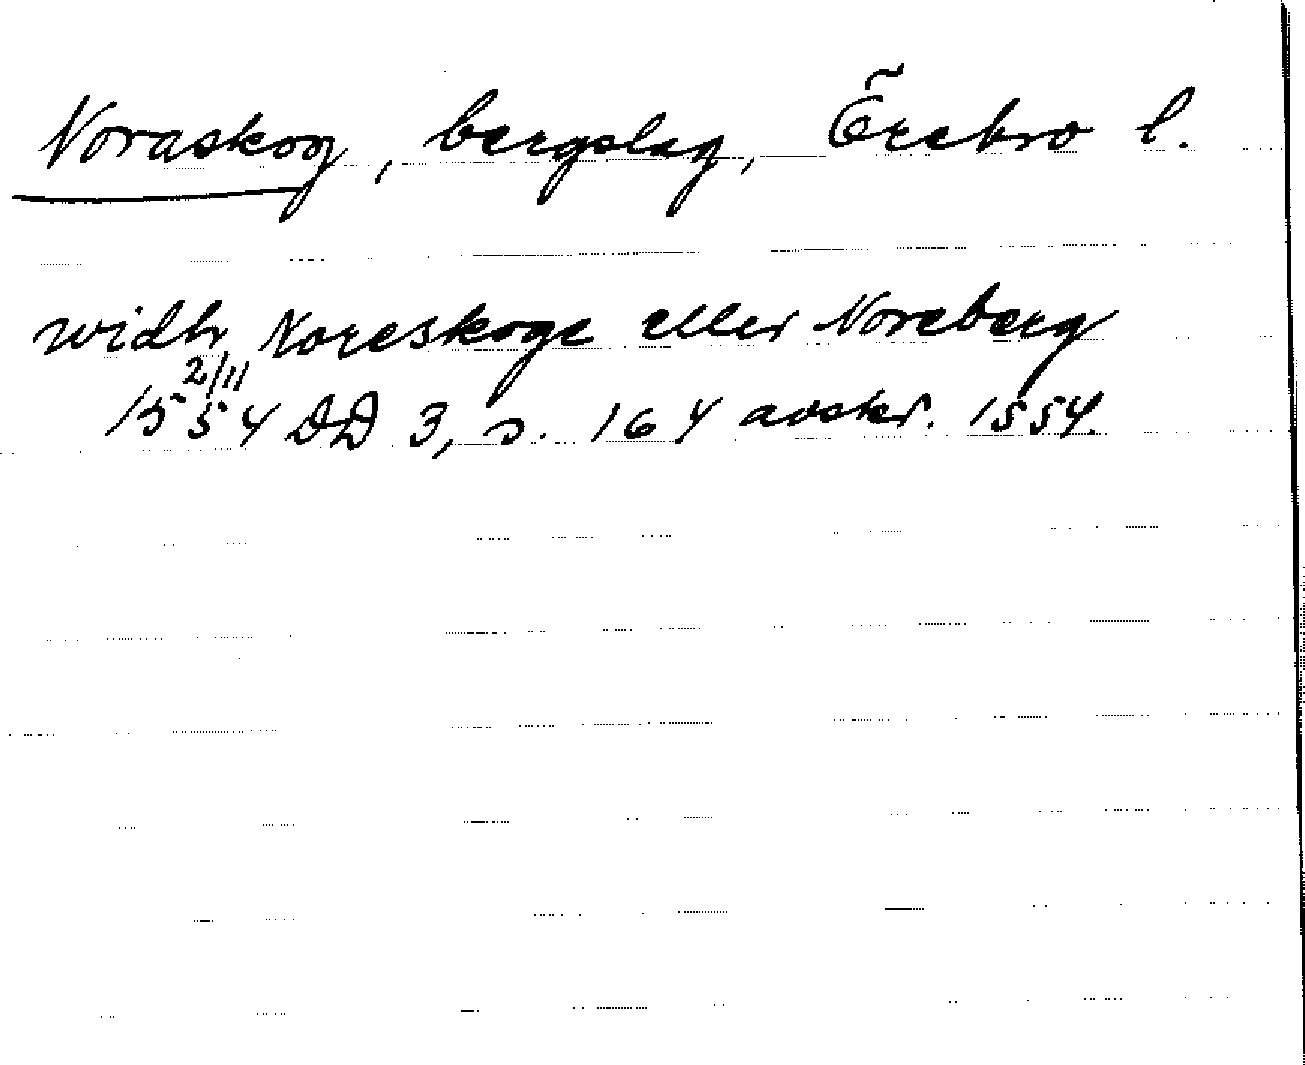 Noraskog, bergslag, Örebro l.
widh Noreskoge eller Noreberg
2/11
1554 DD 3, s. 164 avskr. 1554.